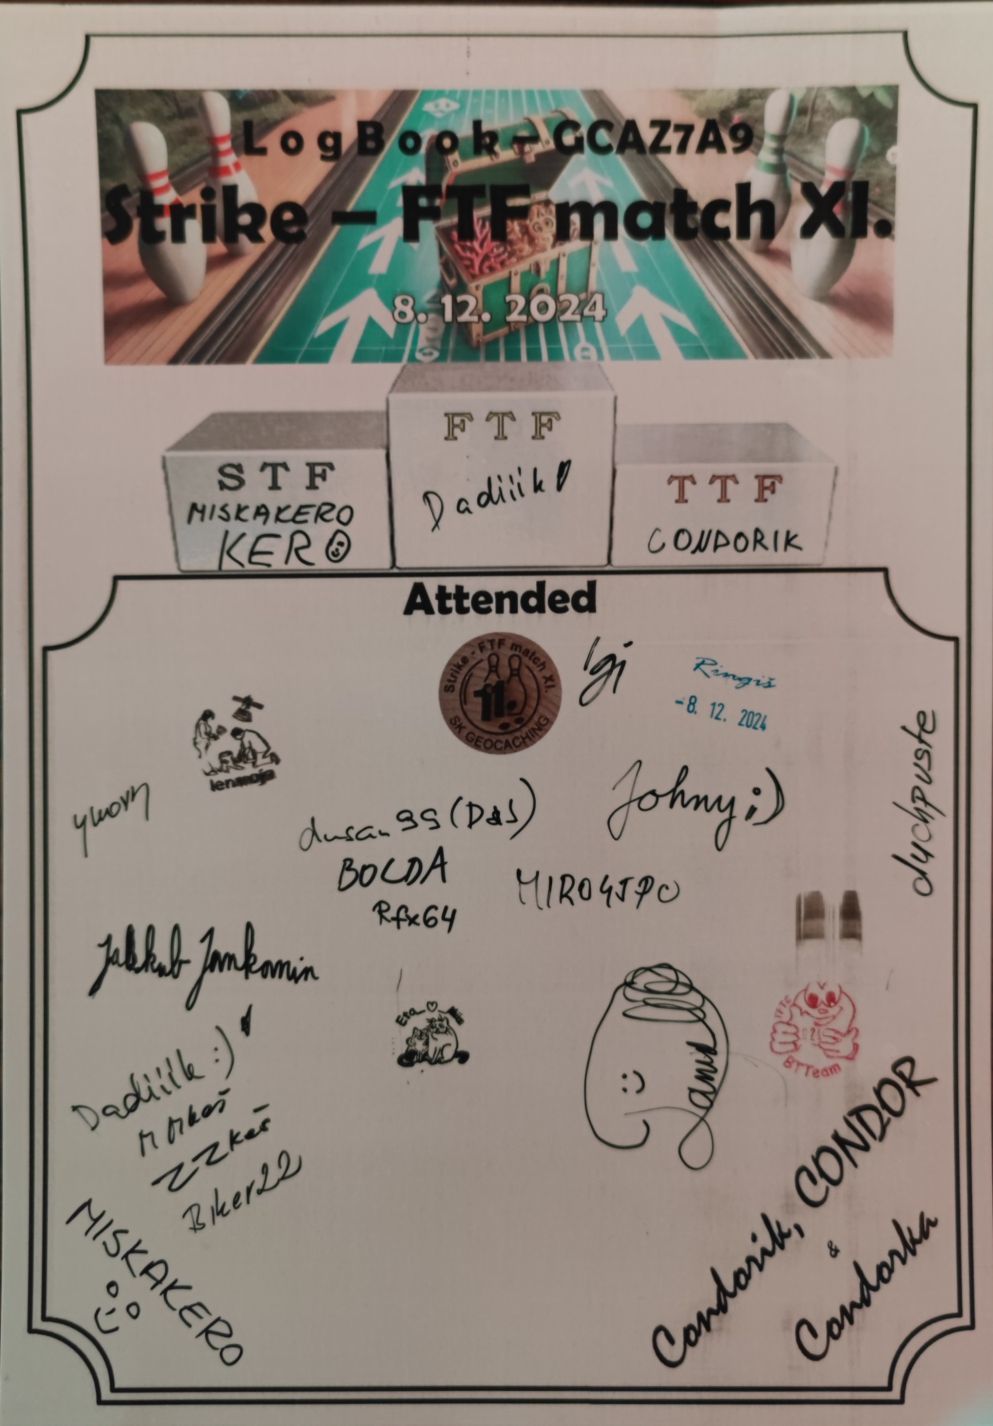 LogBook – GCAZ7A9
Strike – FTF match XI.
8. 12. 2024
FTF
Dadiiik
STF
MISKAKERO
KERO
TTF
CONDORIK
Attended
Strike - FTF match XI.
11.
SK GEOCACHING
Igi
Ringiš
-8. 12. 2024
lenmoja
duchpuste
Johny ;)
dusan99 (D&S)
BOLDA
Rfx64
MIRO4JPO
Jakkub Jankomin
BTTeam
Dadiiik :)
ZZkeš
Biker22
MISKAKERO
Condorik, CONDOR
&
Condorka